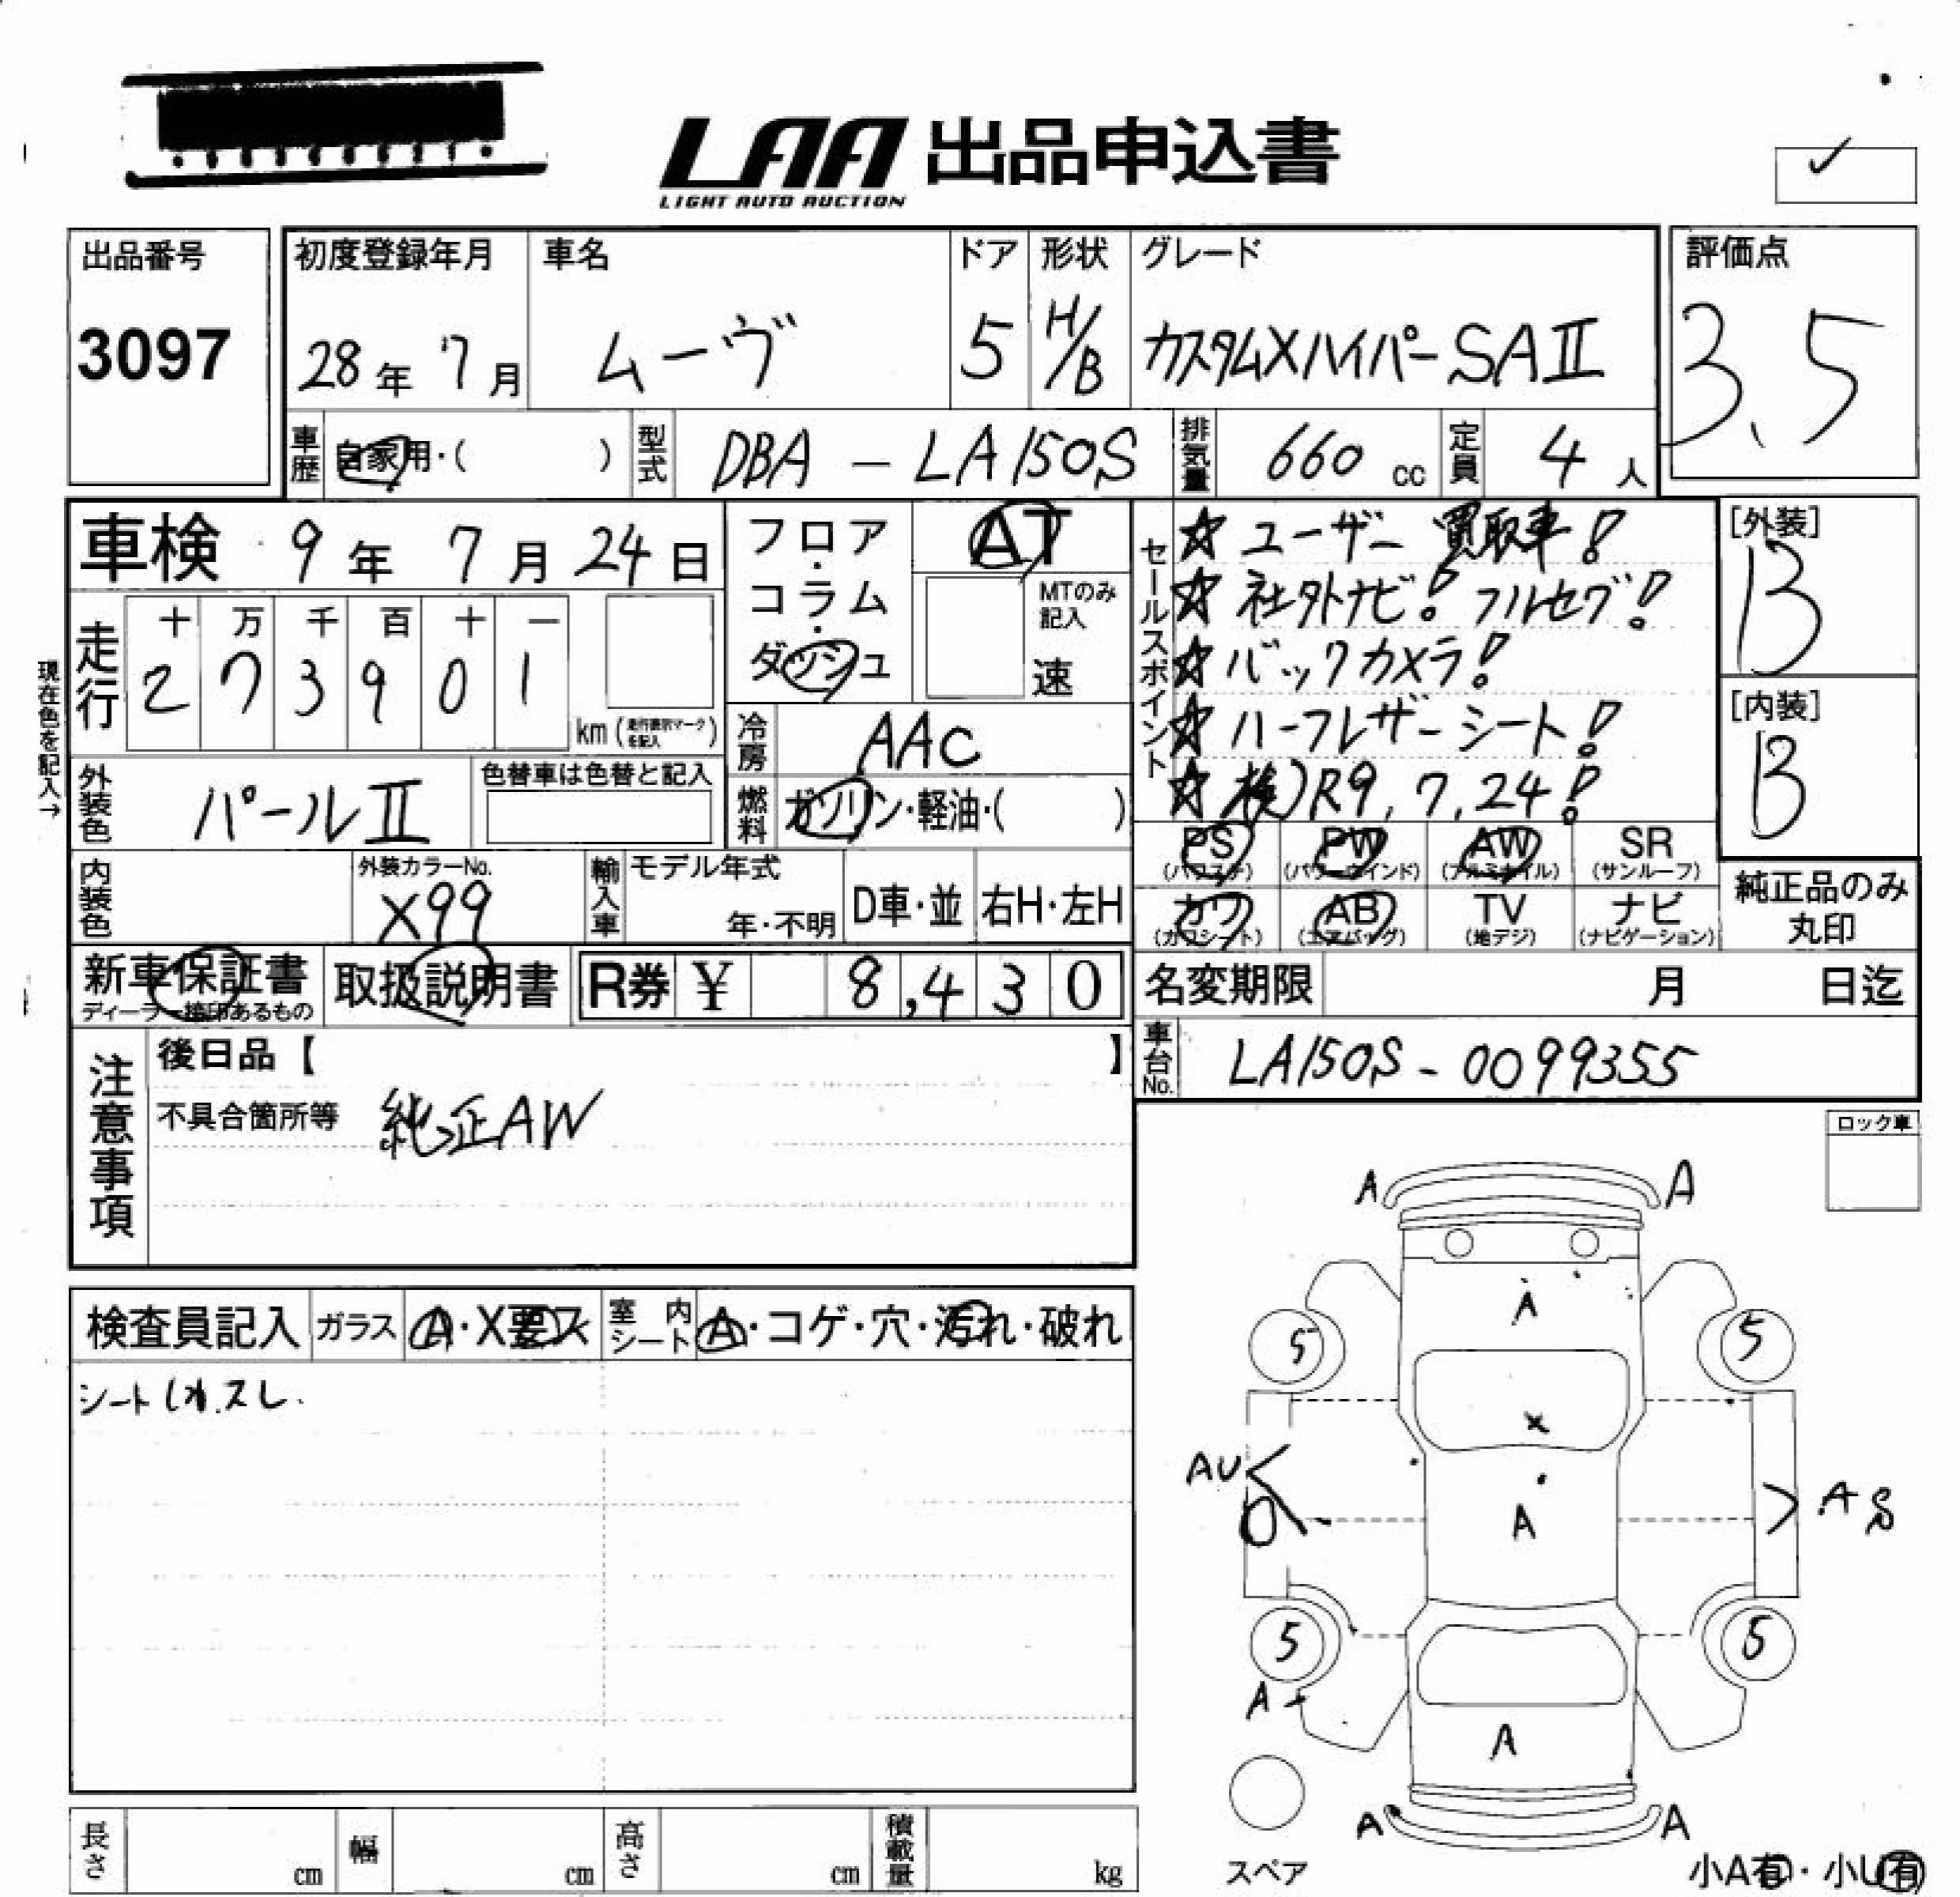 LAA 出品申込書
LIGHT AUTO AUCTION
出品番号
3097
初度登録年月
28年 7月
車名
ムーヴ
ドア
5
形状
H/B
グレード
カスタムXハイパーSAⅡ
評価点
3.5
車歴
自家用・( )
型式
DBA-LA150S
排気量
660 cc
定員
4人
車検 9年 7月 24日
フロア・コラム・ダッシュ
AT
MTのみ記入
速
セールスポイント
☆ユーザー買取車!
☆社外ナビ!フルセグ!
☆バックカメラ!
☆ハーフレザーシート!
☆検)R9,7,24!
[外装]
B
[内装]
B
現在色を記入→
走行
十 万 千 百 十 一
2 7 3 9 0 1
km(走行表示マークを記入)
冷房
AAC
燃料
ガソリン・軽油・( )
外装色
パールⅡ
色替車は色替と記入
内装色
外装カラーNo.
X99
輸入車
モデル年式
年・不明
D車・並
右H・左H
PS AW SR
PW
(パワステ) (パワーウインド) (アルミホイル) (サンルーフ)
カワ AB TV ナビ
(カワシート) (エアバッグ) (地デジ) (ナビゲーション)
純正品のみ
丸印
新車保証書
ディーラー捺印あるもの
取扱説明書
R券 ¥ 8,430
名変期限 月 日迄
車台No.
LA150S-0099355
注意事項
後日品【 】
不具合箇所等 純正AW
ロック車
検査員記入
ガラス
A・X要ス
室内シート
A・コゲ・穴・汚れ・破れ
A A
A
5 5
AU
A
A S
5 5
A
A
A A
スペア
小A有・小U有
長さ cm
幅 cm
高さ cm
積載量 kg